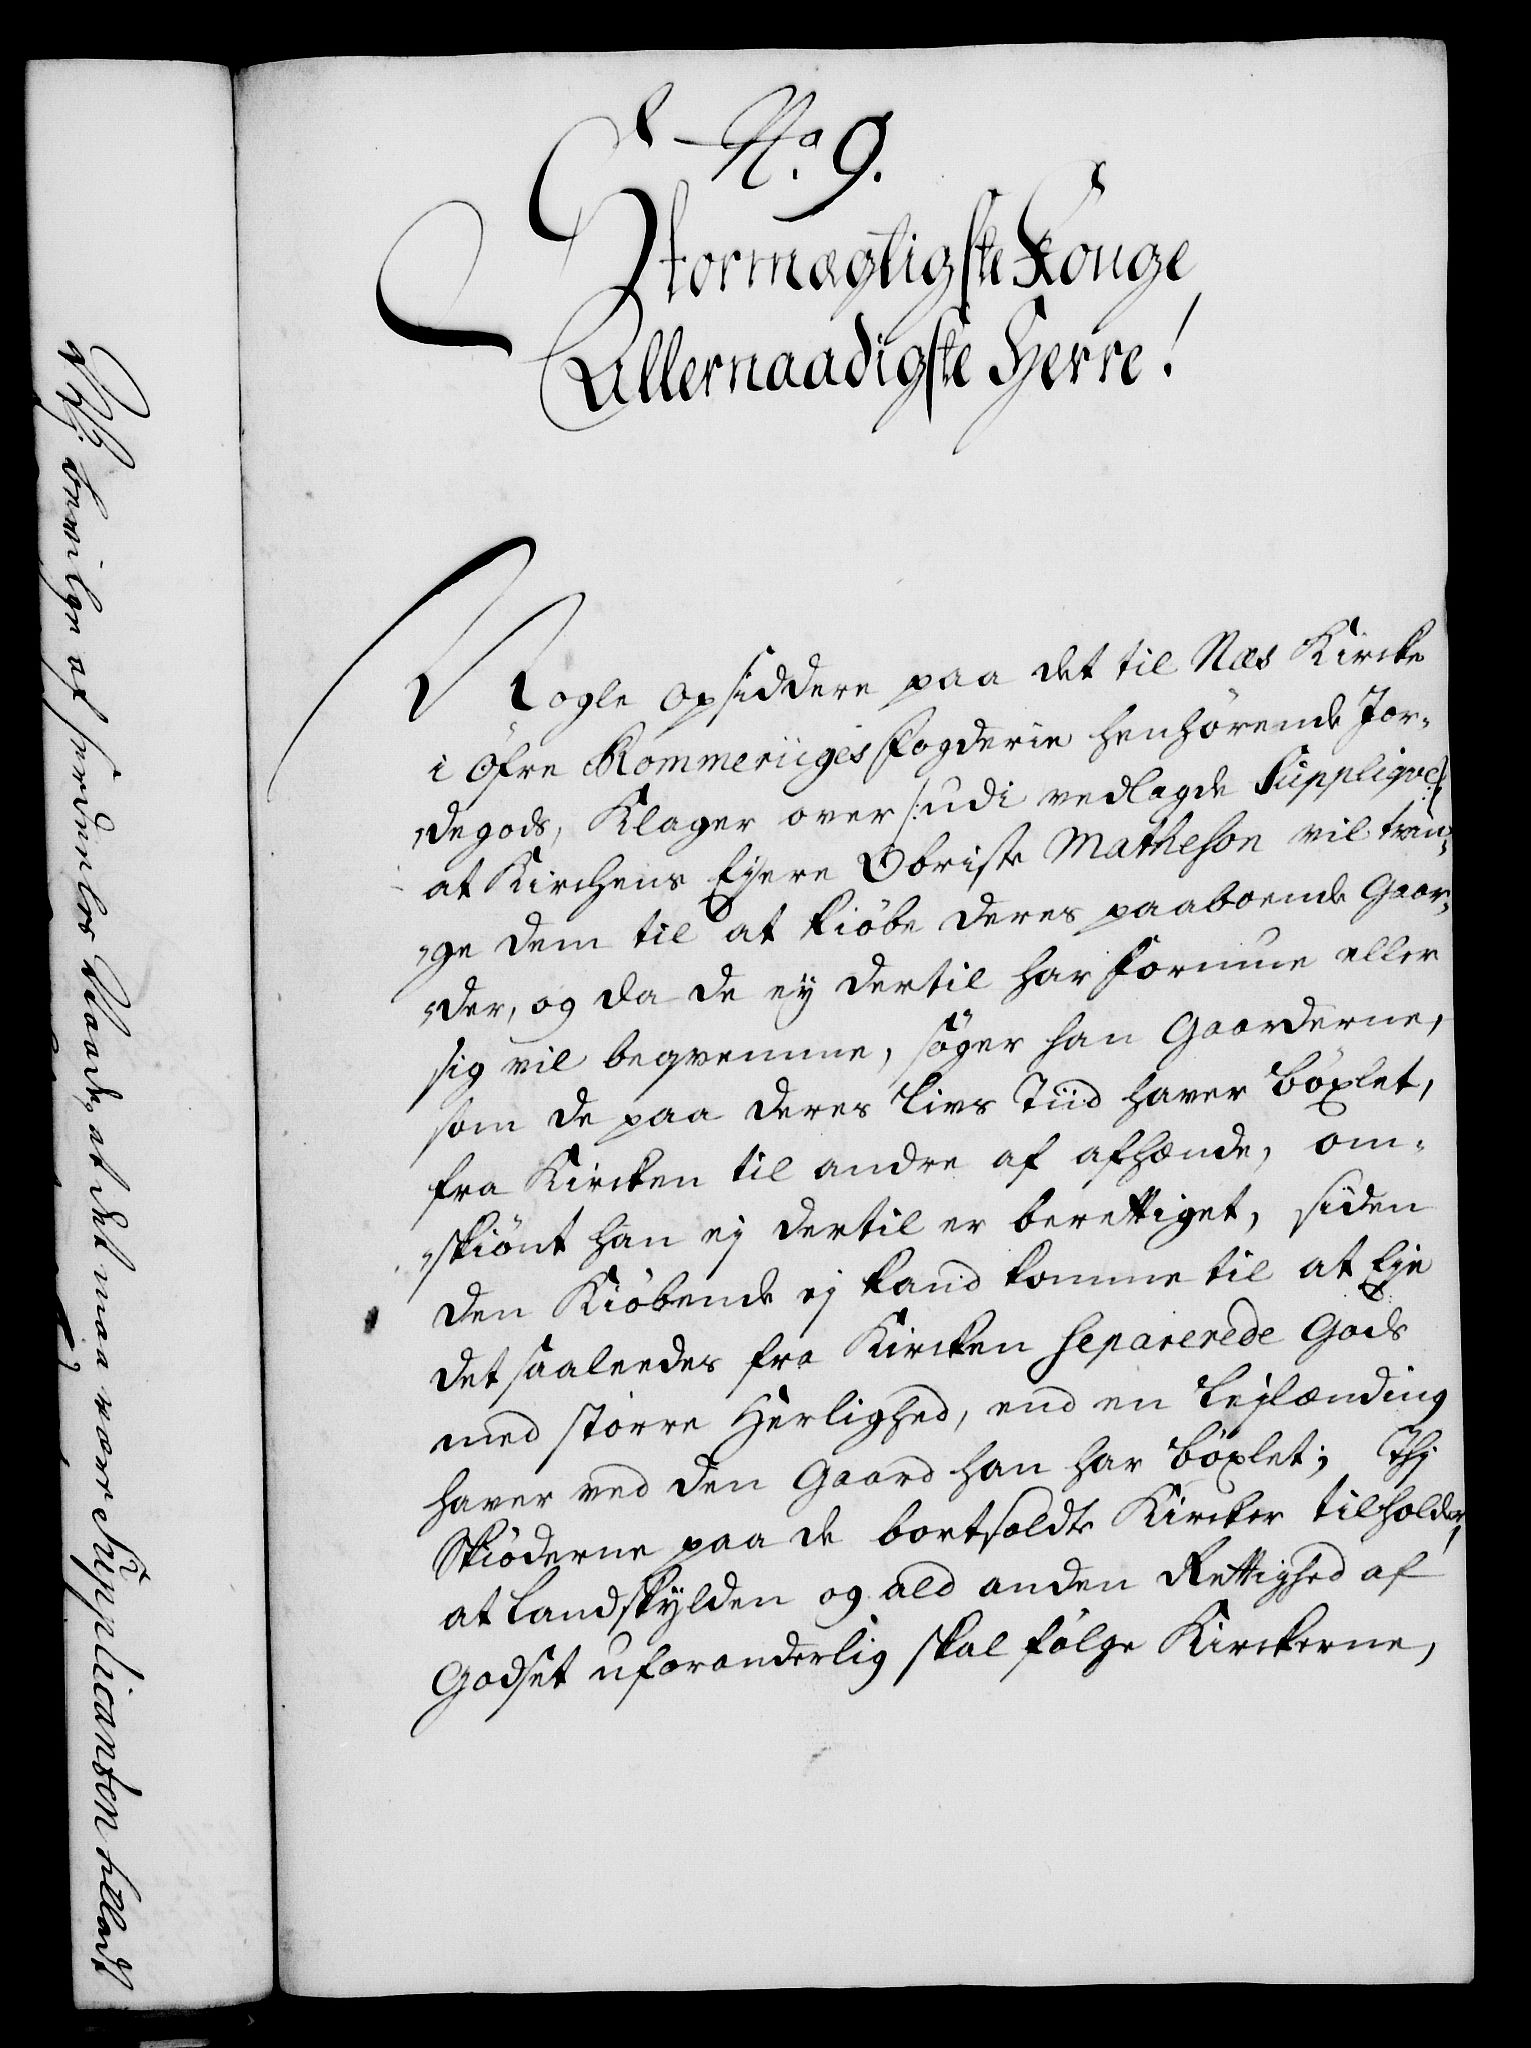 No. 9.
Stormægtigste Konge
Allernaadigste Herre!
Nogle opsiddere paa det til Næs Kircke
i Øfre Rommeriiges Fogderie henhørende Jor-
degods, Klager over /: udi vedlagde Supplique :/
at Kirchens Ejere Obriste Matheson vil trin-
ge dem til at kiøbe deres paaboende Gaar-
der, og da de ey dertil har Formue eller
sig vil beqvemme, søger han Gaarderne,
som de paa deres Livs Tiid haver bøxlet,
fra Kircken til andre af afhænde, om-
skiønt han ej dertil er berettiget, siden
den Kiøbende ej kand komme til at Eje
det saaleedes fra Kircken separerede Gods
med större Herlighed, end en Lejlænding
haver ved den Gaard han har bøxlet; Thj
Skiøderne paa de bortsoldte Kircker tilholder,
at Landskylden og ald anden Rettighed af
Godset uforanderlig skal følge Kirckerne,
bevilges af særdeeles Naade, at det maa være Supplicanten tilladt